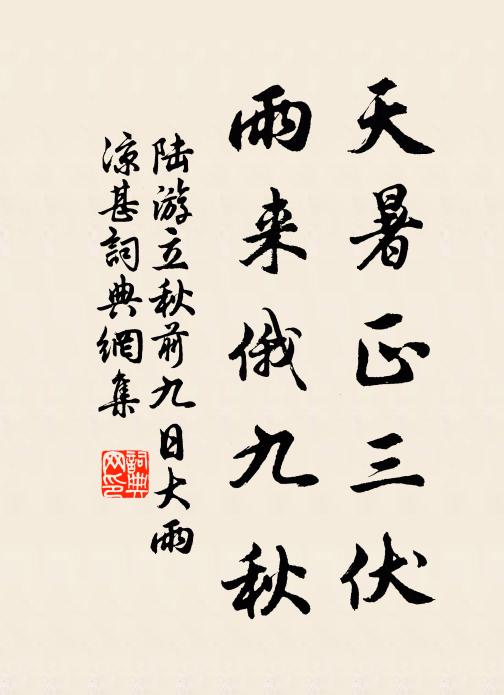 天暑正三伏
雨来俄九秋
陆游立秋前九日大雨
凉甚詞典網集
詞典
网印